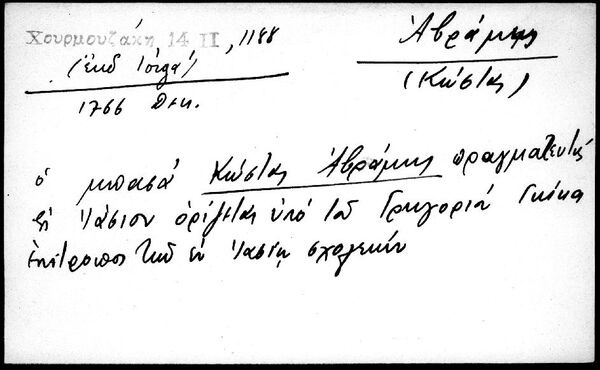 Χουρμουζάκη 14 II, 1188
(ἐκδ Ἰόργα)
1766 Δεκ.
Ἀβράμης
(Κώστας)
ὁ μπασᾶ Κώστας Ἀβράμης πραγματευτὴς
εἰς Ἰάσιον ὁρίζεται ὑπὸ τοῦ Γρηγορίου Γκίκα
ἐπίτροπος τῶν ἐν Ἰασίῳ σχολείων